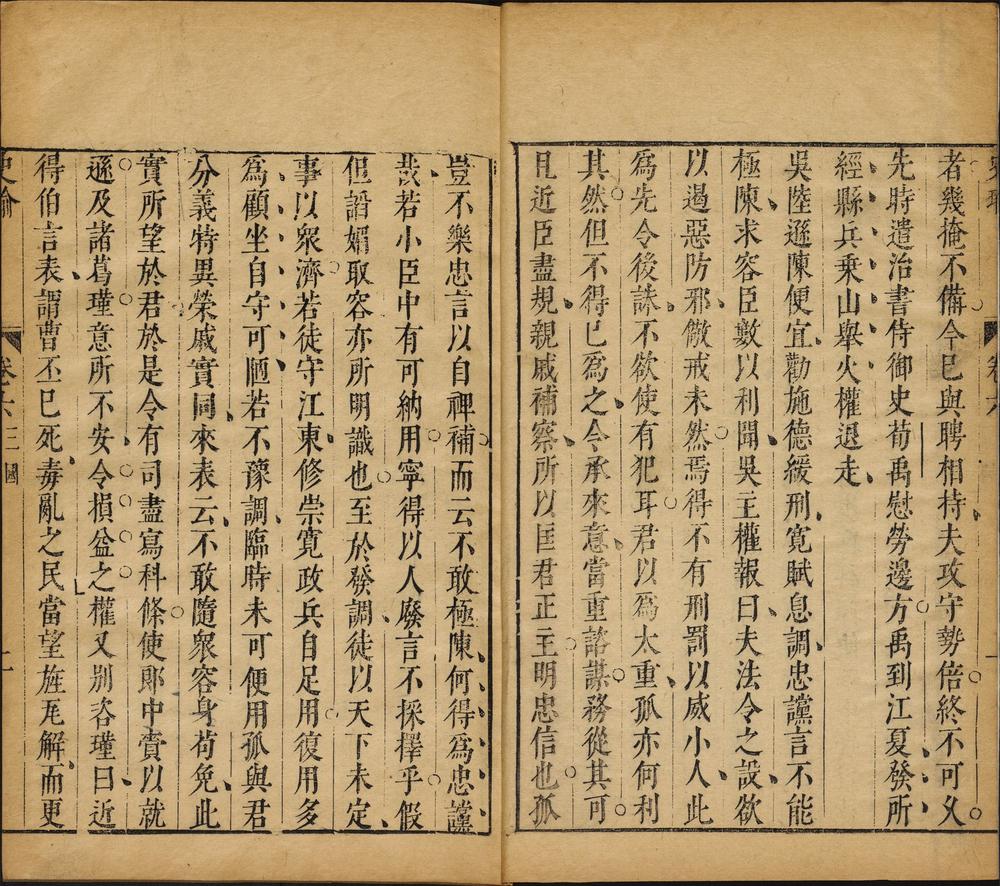 者幾掩不備今已與聘相持夫攻守勢倍終不可乆
先時遣治書侍御史荀禹慰勞邊方禹到江夏發所
經縣兵乗山舉火權退走
吳陸遜陳便宜勸施德緩刑寛賦息調忠讜言不能
極陳求容臣數以利聞吳主權報曰夫法令之設欲
以遏惡防邪儆戒未然焉得不有刑罰以威小人此
爲先令後誅不欲使有犯耳君以爲太重孤亦何利
其然但不得已爲之今承來意當重諮謀務從其可
且近臣盡規親戚補察所以匡君正主明忠信也孤
豈不樂忠言以自裨補而云不敢極陳何得爲忠讜
哉若小臣中有可納用寧得以人廢言不採擇乎假
但諂媚取容亦所明識也至於發調徒以天下未定
事以衆濟若徒守江東修崇寛政兵自足用復用多
爲顧坐自守可陋若不豫調臨時未可便用孤與君
分義特異榮戚實同來表云不敢隨衆容身苟免此
實所望於君於是令有司盡寫科條使郎中賫以就
遜及諸葛瑾意所不安令損益之權又別咨瑾曰近
得伯言表謂曹丕已死毒亂之民當望旌瓦解而更
卷之六 三國